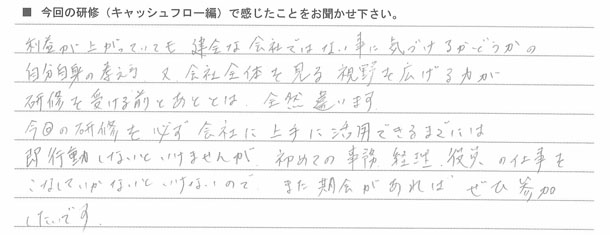 ■ 今回の研修（キャッシュフロー編）で感じたことをお聞かせ下さい。
利益が上がっていても 健全な会社ではない事に気づけるかどうかの
自分自身の考え方、又、会社全体を見る視野を広げる力が
研修を受ける前とあとでは、全然違います。
今回の研修を必ず会社に上手に活用できるまでには
即行動しないといけませんが、初めての事務、経理、役員の仕事を
こなしていかないといけないので、また期会があれば ぜひ参加
したいです。